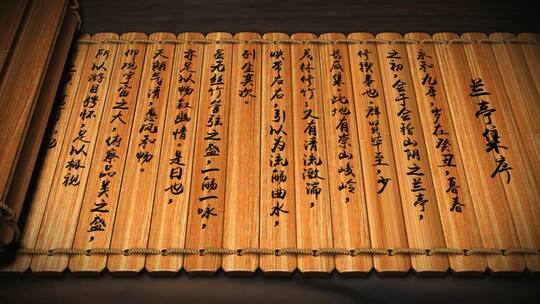 兰亭集序
永和九年，岁在癸丑，暮春
之初，会于会稽山阴之兰亭，
修禊事也。群贤毕至，少
长咸集。此地有崇山峻岭，
茂林修竹，又有清流激湍，
映带左右，引以为流觞曲水，
列坐其次。
虽无丝竹管弦之盛，一觞一咏，
亦足以畅叙幽情。是日也，
天朗气清，惠风和畅。
仰观宇宙之大，俯察品类之盛，
所以游目骋怀，足以极视